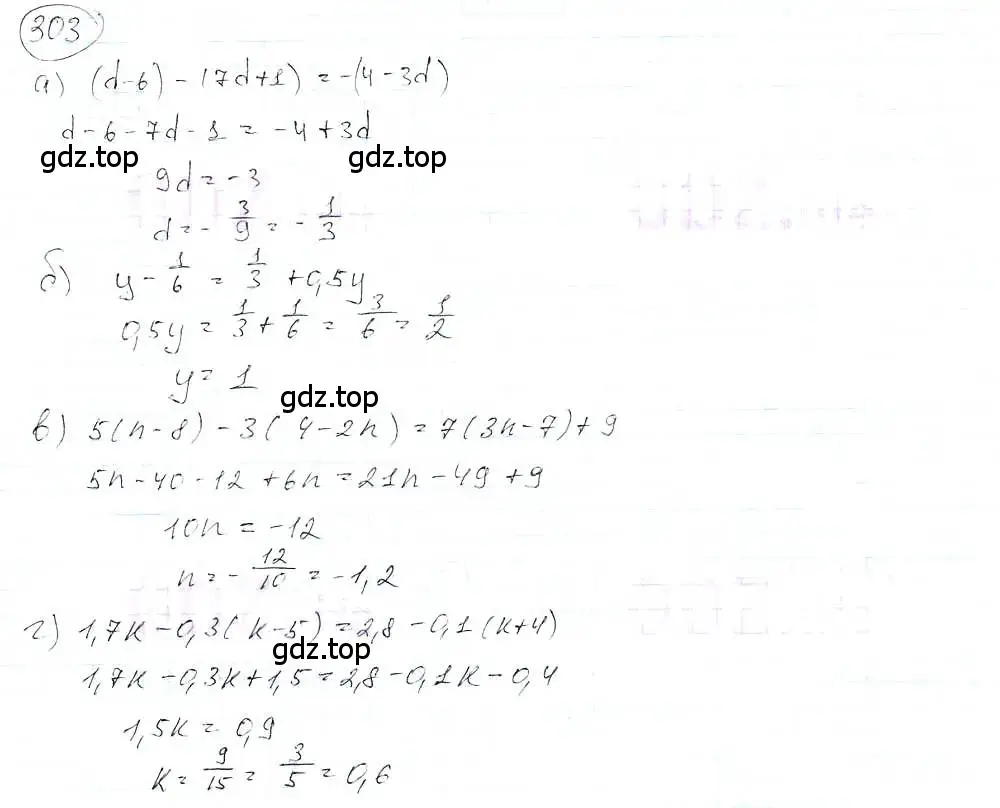 303
а) (d-6) - (7d+1) = -(4-3d)
d-6-7d-1 = -4+3d
gdz.top
gdz.top
9d = -3
d = - 3/9 = - 1/3
б) y - 1/6 = 1/3 + 0,5y
0,5y = 1/3 + 1/6 = 3/6 = 1/2
y = 1
gdz.top
в) 5(n-8) - 3(4-2n) = 7(3n-7)+9
5n-40-12+6n = 21n-49+9
10n = -12
n = - 12/10 = -1,2
г) 1,7k-0,3(k-5) = 2,8-0,1(k+4)
gdz.top
1,7k-0,3k+1,5 = 2,8-0,1k-0,4
1,5k = 0,9
k = 9/15 = 3/5 = 0,6